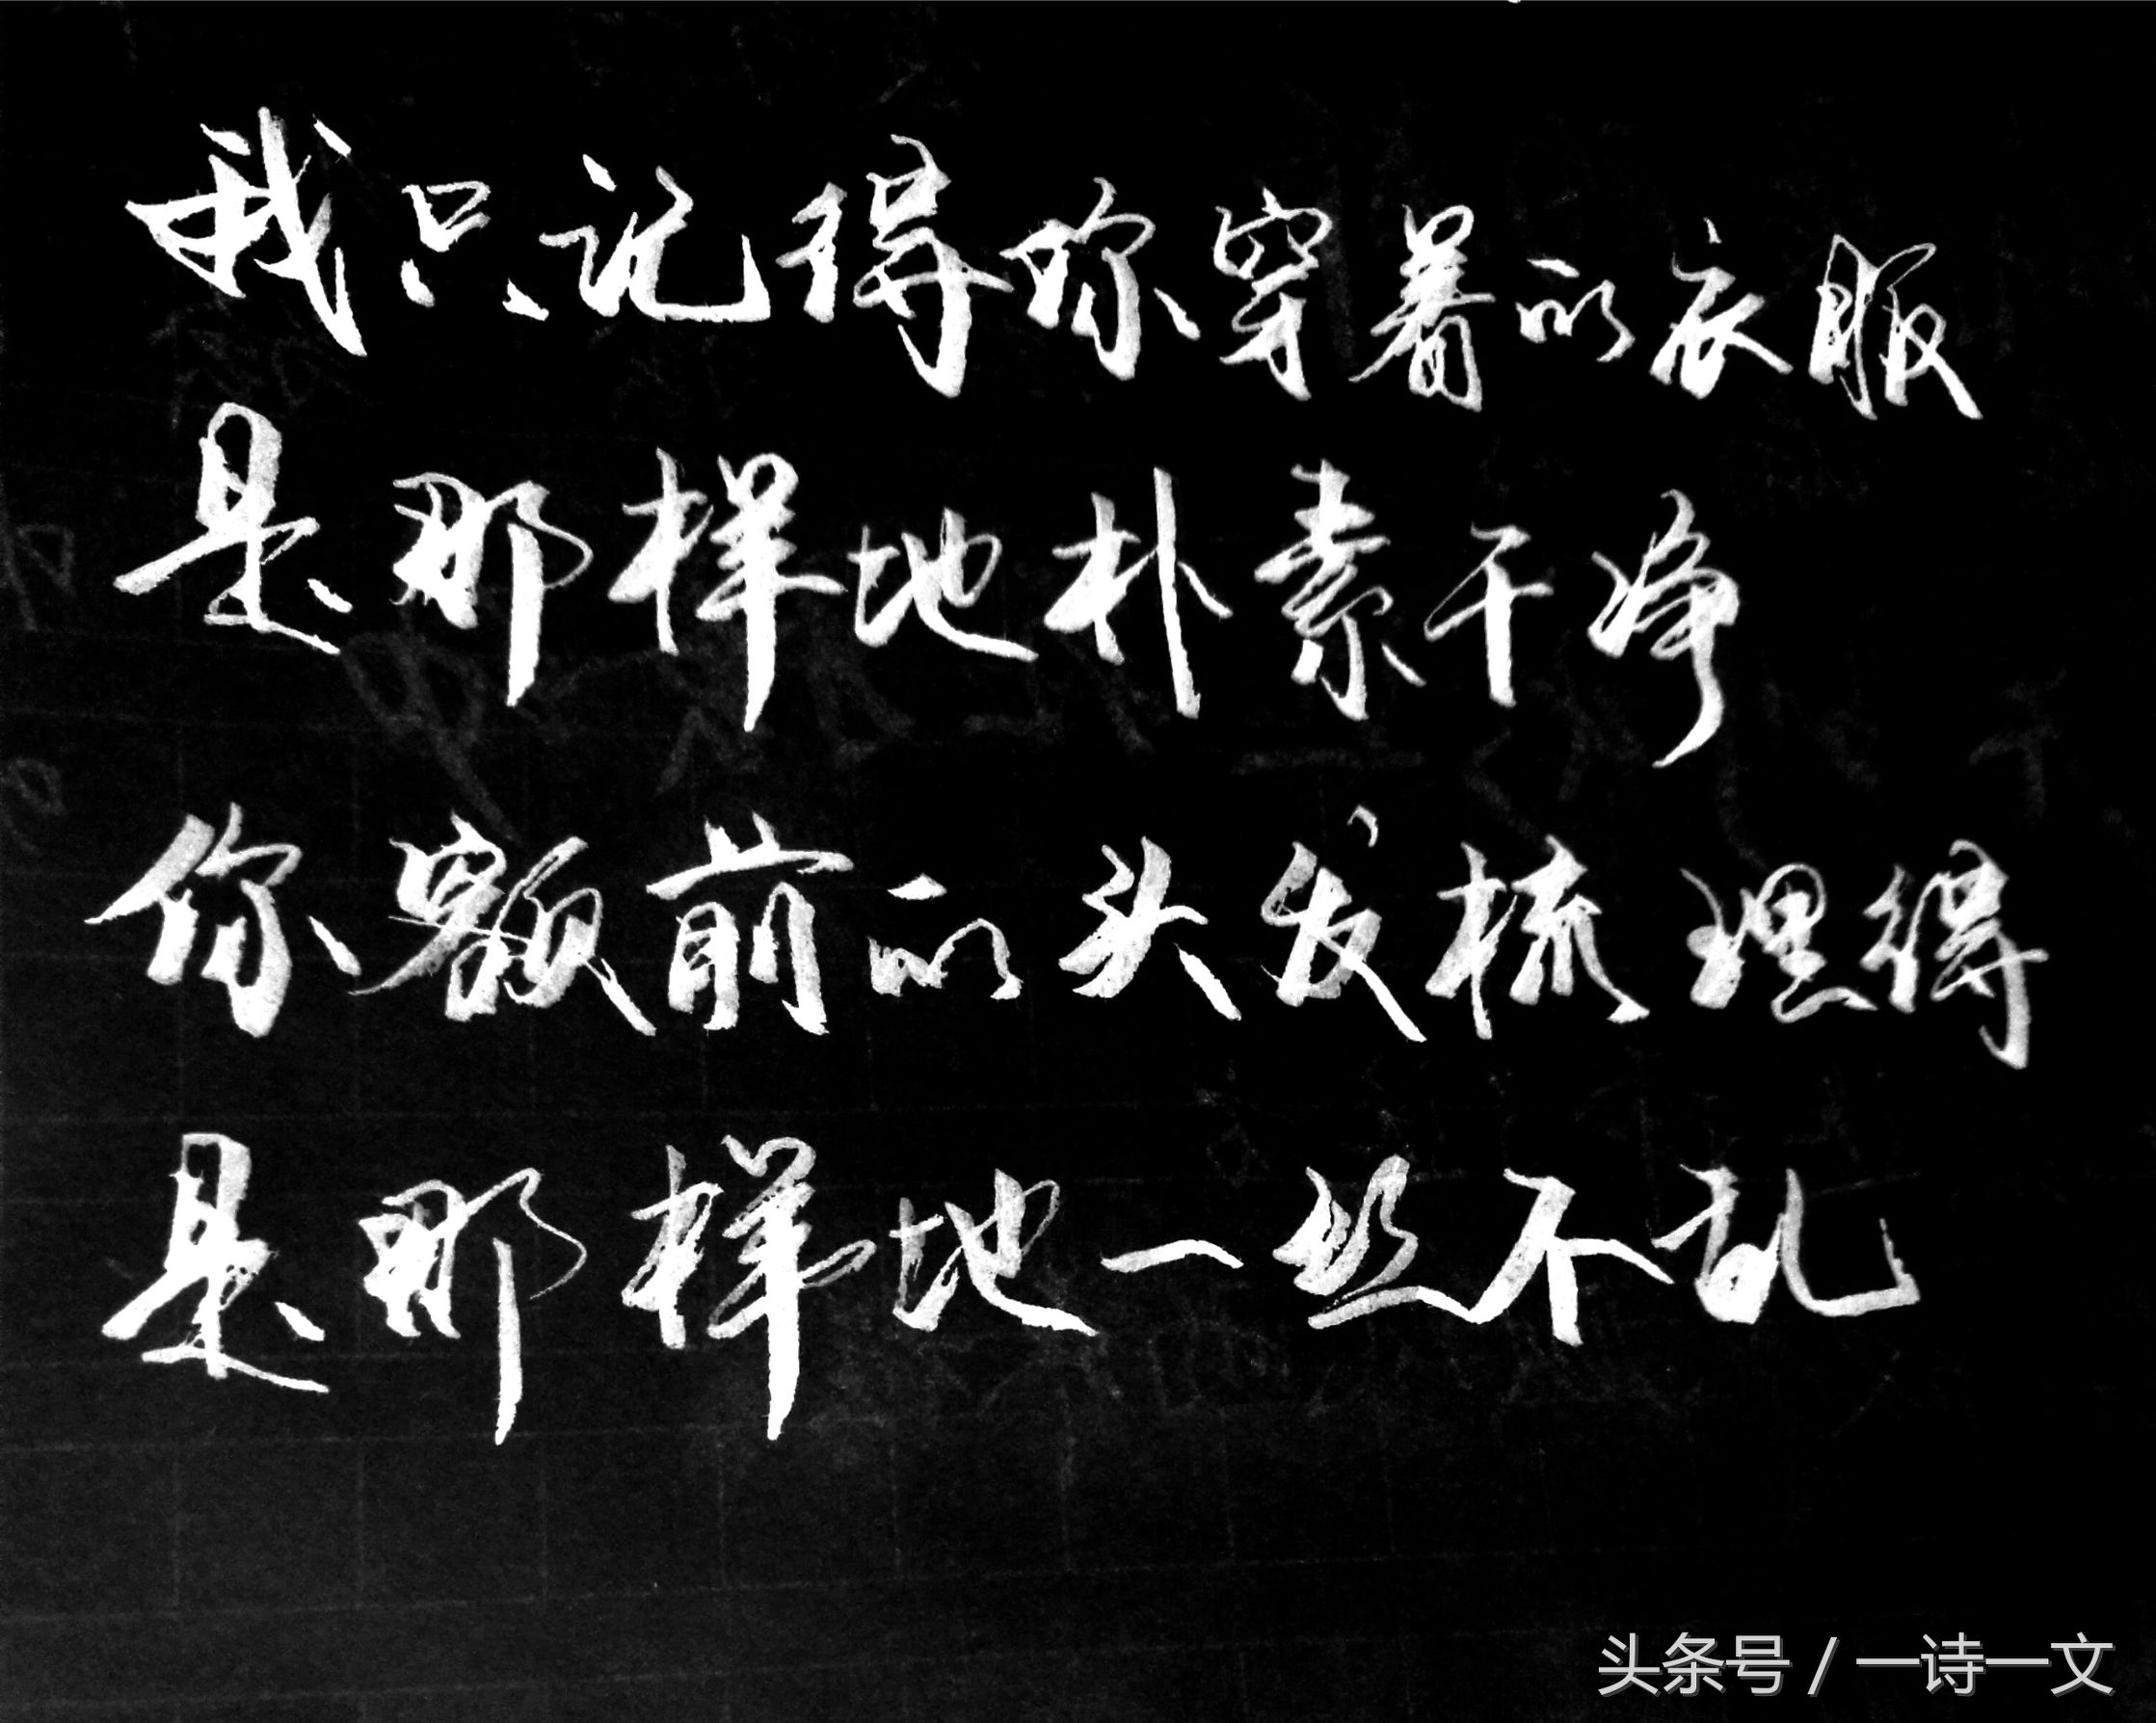 我只记得你穿着的衣服
是那样地朴素干净
你额前的头发梳理得
是那样地一丝不乱
头条号 / 一诗一文